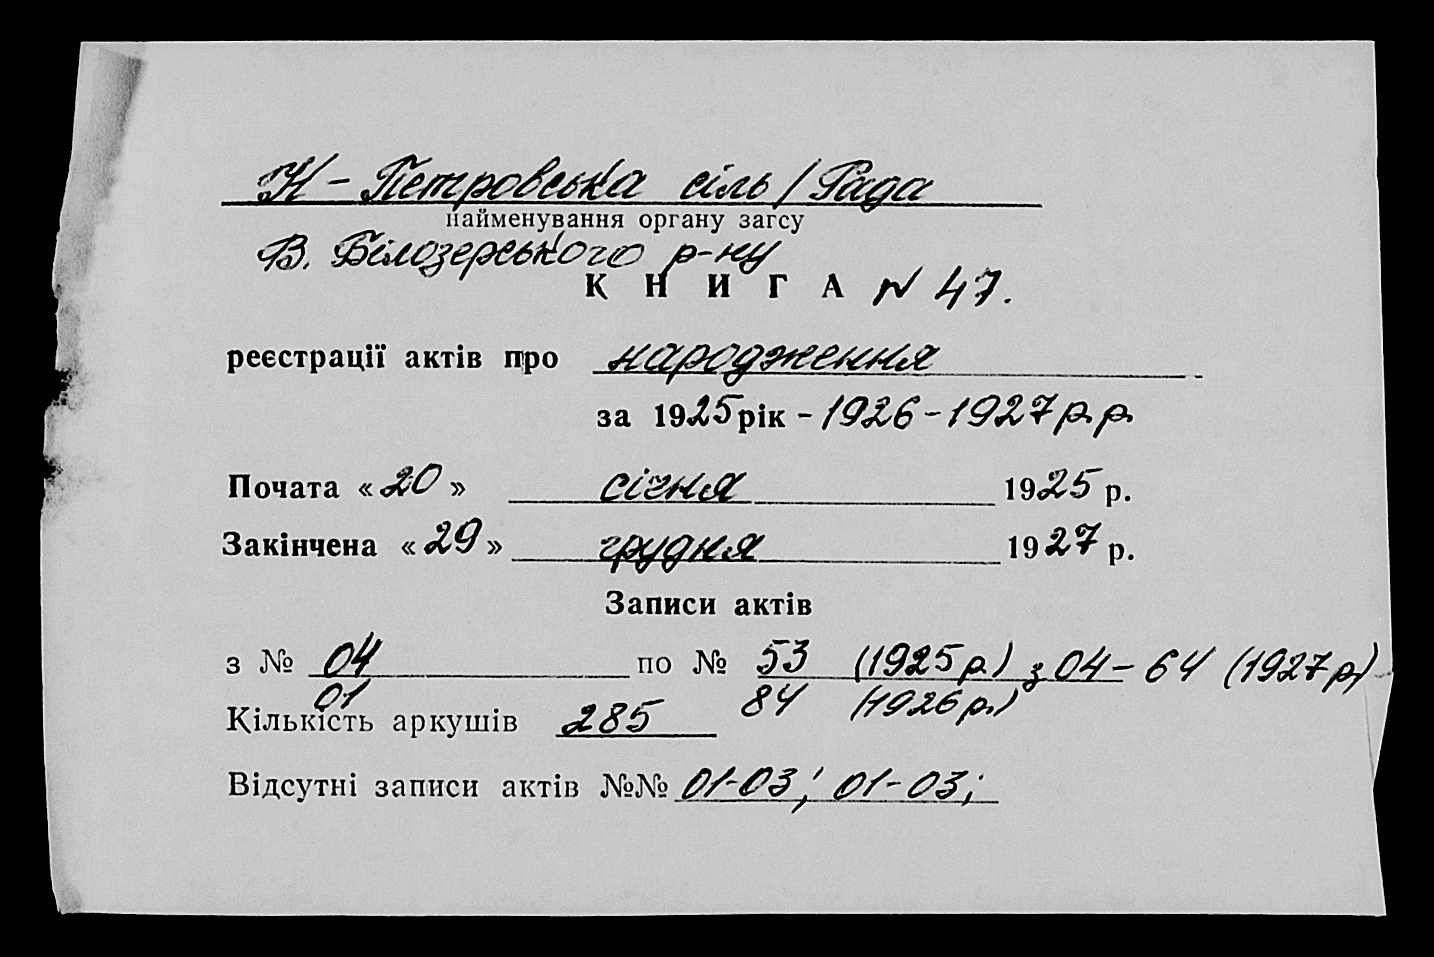 Н-Петровська сіль/Рада
найменування органу загсу
В. Білозерського р-ну
КНИГА N 47.
реєстрації актів про народження
за 1925 рік - 1926 - 1927 р.р.
Почата «20» січня 1925 р.
Закінчена «29» грудня 1927 р.
Записи актів
з № 04 по № 53 (1925 р.) з 04 - 64 (1927 р)
01 84 (1926 р.)
Кількість аркушів 285
Відсутні записи актів №№ 01-03; 01-03;